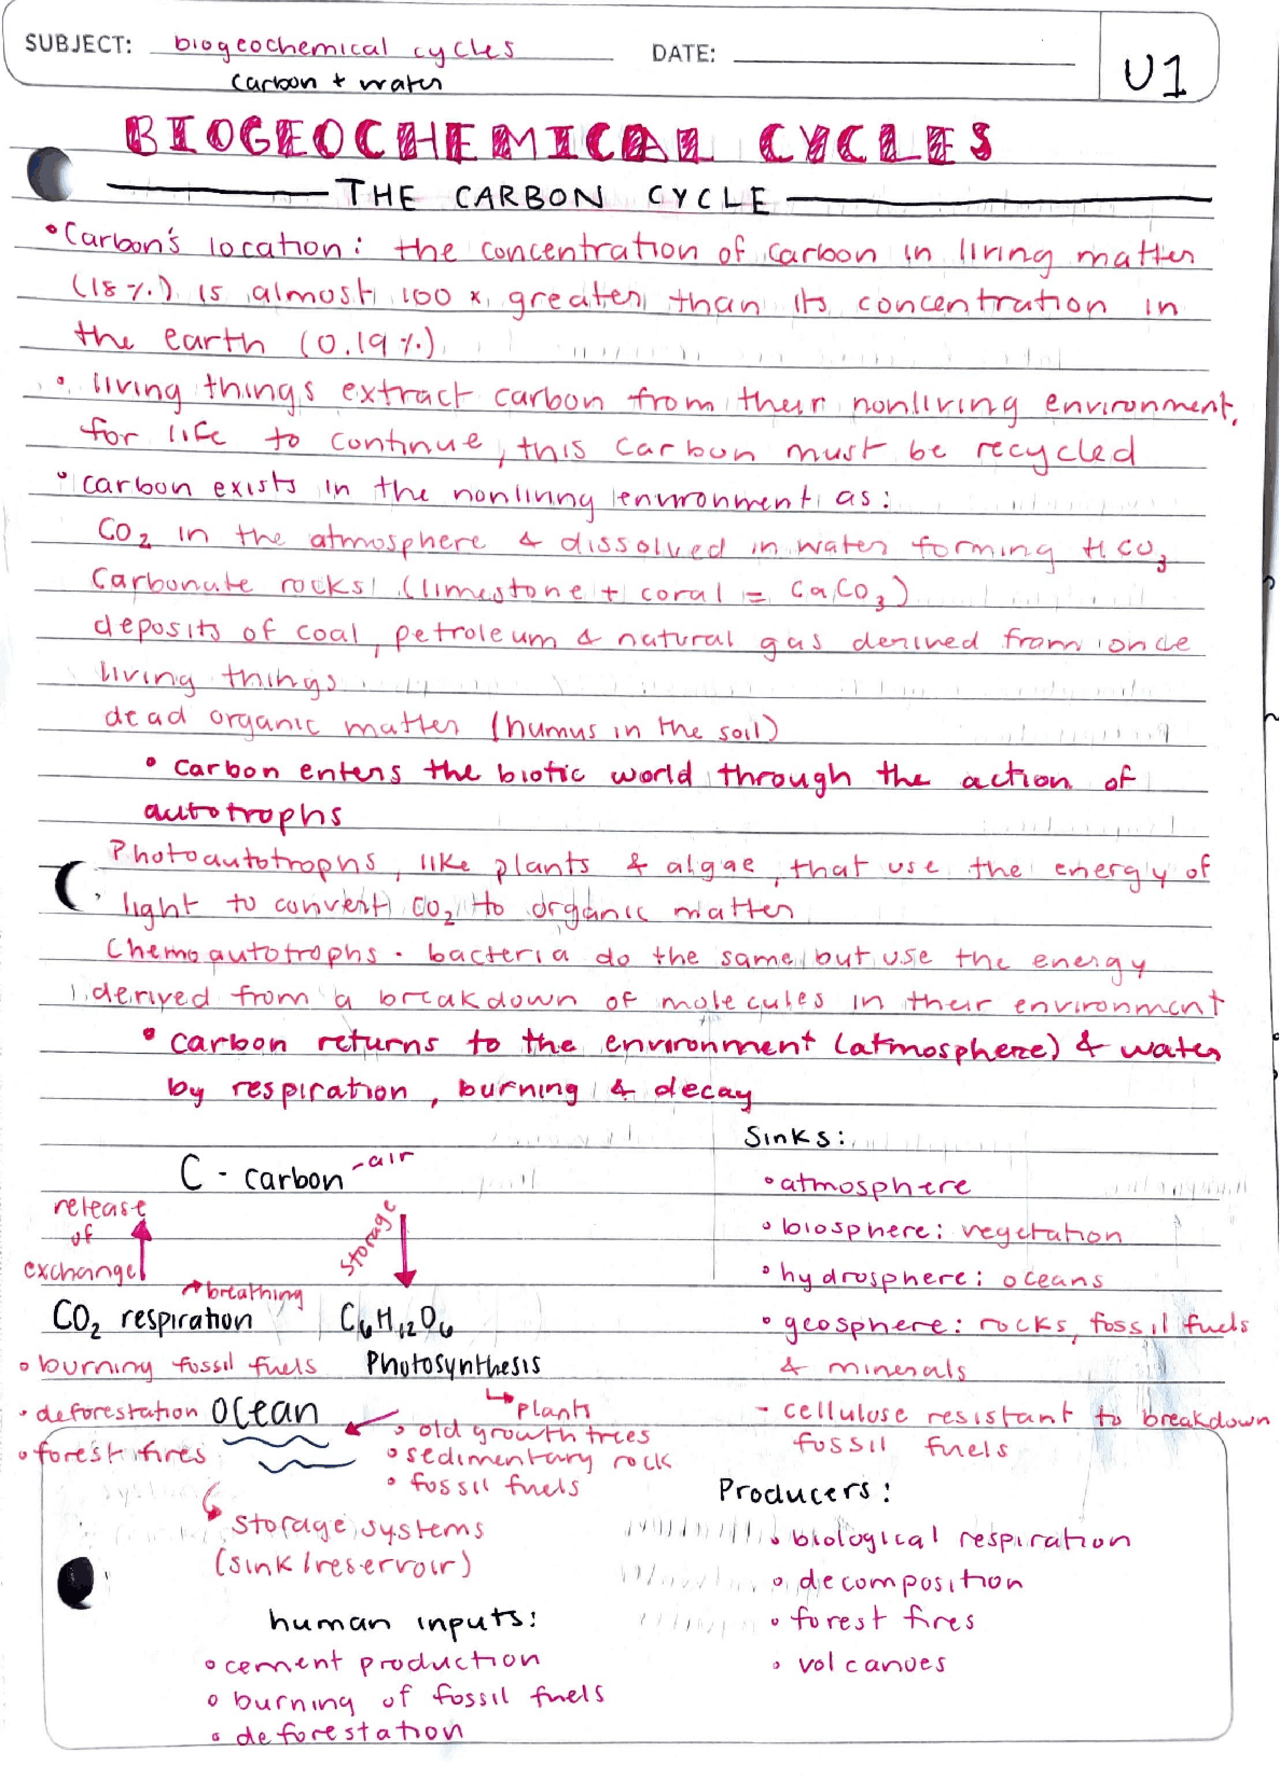 SUBJECT: biogeochemical cycles
DATE:
U1
carbon + water
BIOGEOCHEMICAL CYCLES
THE CARBON CYCLE
• Carbon's location: the concentration of carbon in living matter
(18%) is almost 100 x greater than its concentration in
the earth (0.19%)
• living things extract carbon from their nonliving environment.
for life to continue, this carbon must be recycled
• carbon exists in the nonliving environment as:
CO2 in the atmosphere & dissolved in water forming HCO3
Carbonate rocks (limestone + coral = CaCO3)
deposits of coal, petroleum & natural gas derived from once
living things
dead organic matter (humus in the soil)
• carbon enters the biotic world through the action of
autotrophs
Photoautotrophs, like plants & algae, that use the energy of
light to convert CO2 to organic matter
Chemoautotrophs - bacteria do the same but use the energy
derived from a breakdown of molecules in their environment
• carbon returns to the environment (atmosphere) & water
by respiration, burning & decay
C - carbon - air
release
of
exchange
storage
breathing
CO2 respiration
C6H12O6
• burning fossil fuels
Photosynthesis
• deforestation
ocean
plants
• forest fires
• old growth trees
• sedimentary rock
• fossil fuels
storage systems
(sink/reservoir)
human inputs:
• cement production
• burning of fossil fuels
• deforestation
Sinks:
• atmosphere
• biosphere: vegetation
• hydrosphere: oceans
• geosphere: rocks, fossil fuels
& minerals
- cellulose resistant to breakdown
fossil fuels
Producers:
• biological respiration
• decomposition
• forest fires
• volcanoes